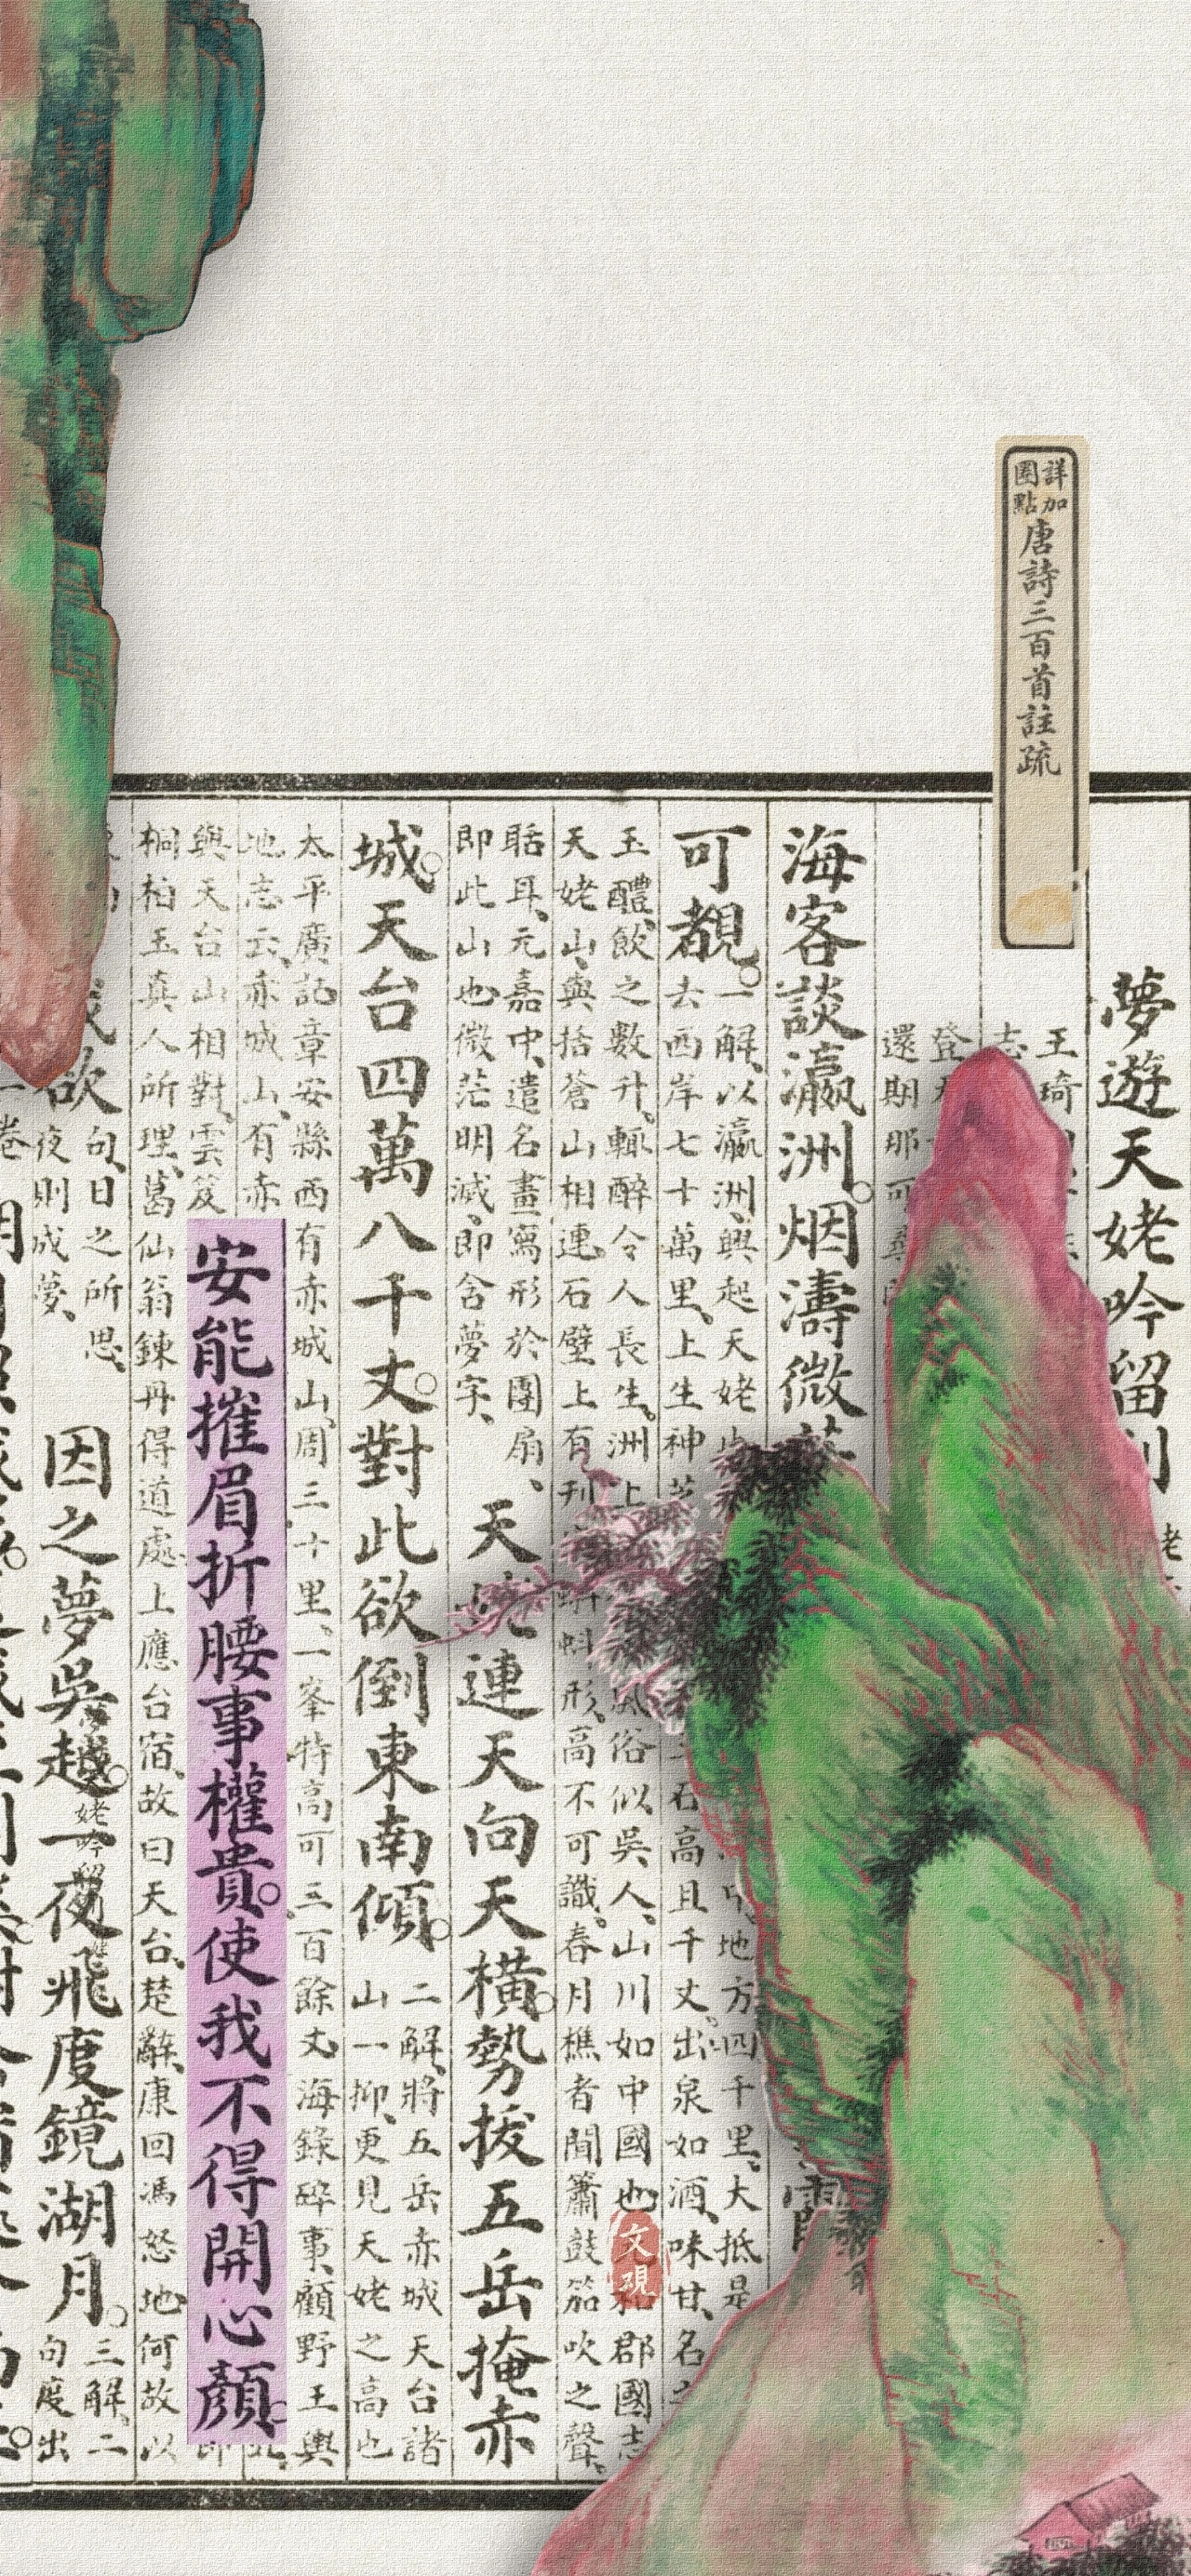 詳加
圈點
唐詩三百首註疏
夢遊天姥吟留
王琦
志
登
還期那可
海客談瀛洲。烟濤微
可覩。
一解、以瀛洲、興起天姥 地方四千里、大抵是
去西岸七十萬里、上生神 石高且千丈。出泉如酒、味甘、名
玉醴、飲之數升、輒醉令人長生。洲上 風俗似吳人、山川如中國也 郡國志
天姥山、與括蒼山相連、石壁上有刋 蚪形、高不可識。春月樵者聞簫鼓笳吹之聲、
聒耳、元嘉中、遣名畫寫形於團扇、
即此山也微茫明滅、即含夢字、
天 連天向天橫。勢拔五岳掩赤
城。天台四萬八千丈。對此欲倒東南傾。
二解、將五岳赤城天台諸
山一抑、更見天姥之高也
太平廣記章安縣西有赤城山、周三十里、一峯特高可三百餘丈、海錄碎事、顧野王輿
地志云、赤城山、有赤
與天台山相對、雲笈
安能摧眉折腰事權貴。使我不得開心顏。
桐柏玉真人所理、葛仙翁鍊丹得道處、上應台宿、故曰天台、楚辭、康回馮怒、地何故以
欲
句、日之所思、
夜則成夢、
因之夢吳越。一夜飛度鏡湖月。
三解、二
句度出
文